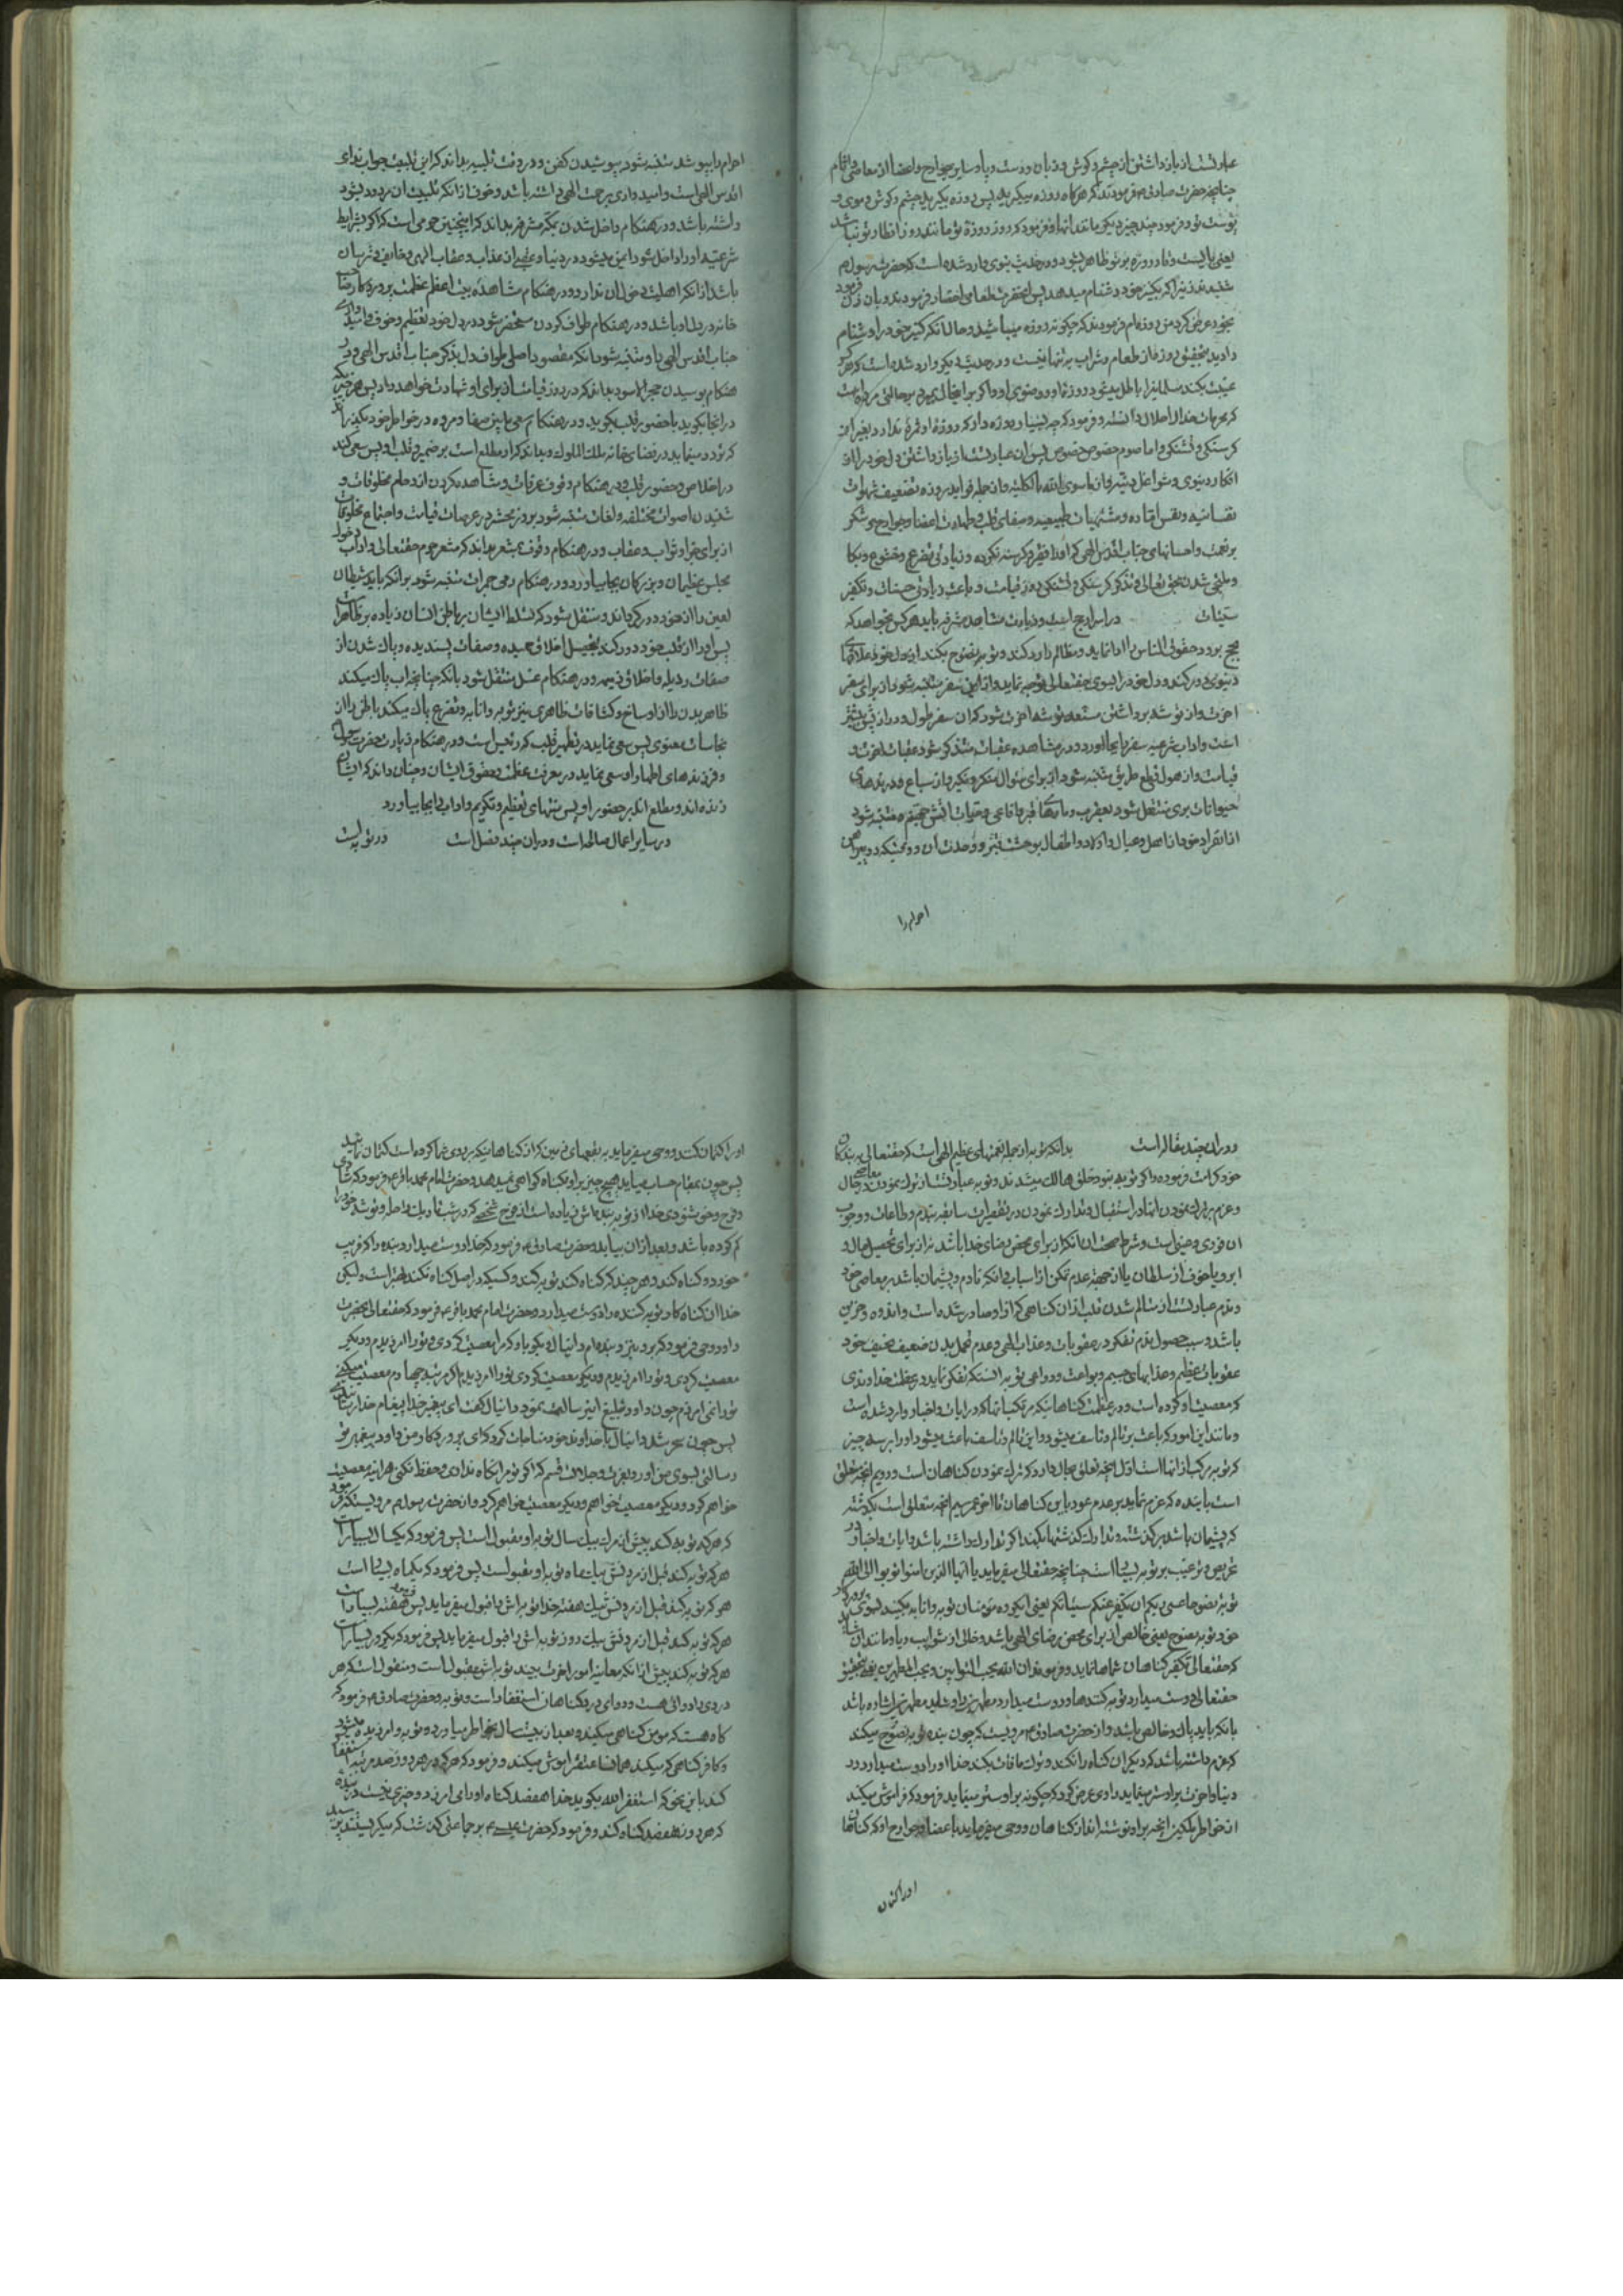 عبارتست از باز داشتن از چشم و گوش و زبان و دست و پا و سایر جوارح و اعضا از معاصی و آثام
چنانچه حضرت صادق ع فرمودند که هرگاه روزه میگیرید پس روزه بگیرید چشم و گوش و موی و
پوست تو و فرمود چند چیز دیگر مانند آنها و فرمود که روز روزهٔ تو مانند روز افطار تو نباشد
یعنی بایست وقار روزه بر تو ظاهر بشود و در حدیث نبوی وارد شده است که حضرت رسول ص
شنیدند زنی را که کنیز خود دشنام میدهد پس آنحضرت طعامی احضار فرمودند و بان زن فرمود
بخور عرض کرد من روزه‌ام فرمودند که چگونه روزه میباشید و حال آنکه کنیز خود را دشنام
دادید بتحقیق روزه از طعام و شراب به تنها نیست و در حدیث دیگر وارد شده است که هرکه
غیبت بکند مسلمانیرا باطل میشود روزهٔ او و وضوی او و اگر بر اینحال بمیرد بر حالتی مرده است
که محرمات خدا را حلال دانسته و فرمود که چه بسیار روزه دار که روزهٔ او ثمرهٔ ندارد بغیر از
گرسنگی و تشنگی و اما صوم خصوص خصوص پس آن عبارتست از باز داشتن دل خود را از
افکار دنیوی و شواغل دنیه و از ماسوی الله بالکلیه و از جمله فواید روزه تضعیف شهوات
نفسانیه و نفس اماره و مشتهیات طبیعیه و صفای قلب و طهارت اعضا و جوارح و شکر
بر نعمت و احسانهای جناب اقدس الهی که او را فقیر و گرسنه نکرده و زیادتی تضرع و خشوع و بکا
و ملتجی شدن بحق تعالی و تذکر گرسنگی و تشنگی روز قیامت و باعث زیادتی حسنات و تکفیر
سیئات در اسرار حج است و زیارت مشاهد مشرفه باید هر کس بخواهد که
بحج برود حقوق الناس را ادا نماید و مظالم را رد کند و توبه نصوح بکند از دل خود علاقهای
دنیوی دور کند و دل خود را بسوی حقتعالی متوجه نماید و از این سفر متنبه شود از برای سفر
آخرت و از توشه برداشتن مستعد توشه آخرت شود که آن سفر طول و دراز پیش
است و آداب شرعیه سفر را بجا آورد و در مشاهده عقبات متذکر شود عقبات آخرت و
قیامت و از هول قطع طریق متنبه شود از برای سؤال منکر و نکیر و از سباع و درندهای
حیوانات بری منتقل شود بعقرب و مارهای قبر و افاعی و حیات آتش جحیم و متنبه شود
از انفراد خود از اهل و عیال و اولاد و اطفال بوحشت قبر و وحدت آن و وقتیکه دو پیراهن
احرام را
احرام را بپوشد متنبه شود بپوشیدن کفن و در وقت تلبیه بداند که این تلبیت جواب ندای
اقدس الهی است و امیدواری برحمت الهی داشته باشد و خوف از آنکه تلبیت آن مردود بشود
داشته باشد و در هنگام داخل شدن بمکه مشرفه بداند که اینچنین حرمی است که اگر بشرایط
شرعیه او را داخل شود ایمن میشود در دنیا و عقبی از عذاب و عقاب الهی و خایف و ترسان
باشد از آنکه اهلیت دخول آن ندارد و در هنگام مشاهده بیت اعظم عظمت پروردگار و صاحب
خانه در دل او باشد و در هنگام طواف کردن مستحضر شود در دل خود تعظیم و خوف و امیدواری
جناب اقدس الهی را و متنبه شود آنکه مقصود اصلی طواف دل بذکر جناب اقدس الهی و در
هنگام بوسیدن حجر الاسود بداند که در روز قیامت از برای او شهادت خواهد داد پس هر چیزیکه
در آنجا بگوید با حضور قلب بگوید و در هنگام سعی مابین صفا و مروه در خواطر خود بگذراند
که تردد مینماید در فضای خانه ملک الملوک و بداند که او مطلع است بر ضمیر و قلب او پس سعی کند
در اخلاص و حضور قلب و در هنگام وقوف عرفات و مشاهده کردن ازدحام مخلوقات و
شنیدن اصوات مختلفه و لغات متنبه شود بروز محشر در عرصات قیامت و اجتماع مخلوقات
از برای جزا و ثواب و عقاب و در هنگام وقوف بمشعر بداند که مشعر حرم حقتعالی و آداب دخول
مجلس عظیمان و بزرگان بجا بیاورد و در هنگام رمی جمرات متنبه شود بر آنکه باید شیطان
لعین را از خود دور گرداند و منتقل شود که تسلط ایشان بر باطن انسان زیاده بر ظاهر است
پس او را از قلب خود دور کند بتحصیل اخلاق حمیده و صفات پسندیده و پاک شدن از
صفات رذیله و اخلاق ذمیمه و در هنگام غسل منتقل شود بآنکه چنانچه آب پاک میکند
ظاهر بدن را از اوساخ و کثافات ظاهری نیز توبه و انابه و تضرع پاک میکند باطن را از
نجاسات معنوی پس سعی نماید در تطهیر قلب که رئیس است و در هنگام زیارت حضرت رسول
و فرزندهای اطهار او سعی نماید در معرفت عظمت و حقوق ایشان و چنان داند که ایشان
زنده‌اند و مطلع‌اند بر حضور او پس منتهای تعظیم و تکریم و آداب را بجا بیاورد
در سایر اعمال صالحه است و در آن چند فصل است در توبه است
و در آن چند مقاله است بدانکه توبه از جمله نعمتهای عظیم الهی است که حقتعالی به بندگان
خود کرامت فرموده و اگر توبه نبود خلق هالک میشدند و توبه عبارتست از ترک نمودن معاصی در حال
و عزم بر ترک نمودن آنها در استقبال و تدارک نمودن در تقصیرات سابقه بندم و طاعات و وجوب
آن فوری و عینی است و شرط صحت آن آنکه از برای محض رضای خدا باشد نه از برای تحصیل مال و
ابرو یا خوف از سلطان یا از جهة عدم تمکن از اسباب و آنکه نادم و پشیمان باشد بر معاصی خود
و ندم عبارتست از متالم شدن قلب از آن گناهی که از او صادر شده است و اندوه و حزین
باشد و سبب حصول ندم تفکر در عقوبات و عذاب الهی و عدم تحمل بدن ضعیف نحیف خود
عقوبات عظیم و عذابهای جسیم و بواعث و دواعی توبه آنستکه تفکر نماید در عظمت خداوندی
که معصیت او کرده است و در عظمت گناهانیکه مرتکب انها که در آیات و اخبار وارد شده است
و مانند این امور که باعث بر تالم و تاسف میشود و این تالم و تاسف باعث میشود او را بر سه چیز
که توبه مرکب از آنها است اول آنچه تعلق بحال دارد که ترک نمودن گناهان است و دویم آنچه متعلق
است بآینده که عزم نماید بر عدم عود باین گناهان تا آخر عمر سیم آنچه متعلق است بگذشته
که پشیمان باشد بر گذشته و تدارک گذشتها بکند اگر تدارک داشته باشد و آیات و اخبار در
تحریص و ترغیب بر توبه بسیار است چنانچه حقتعالی میفرماید یا ایها الذین امنوا توبوا الی الله
توبة نصوحا عسی ربکم ان یکفر عنکم سیئاتکم یعنی ای گروه مؤمنان توبه و انابه بکنید بسوی پروردگار
خود توبه نصوح یعنی خالص از برای محض رضای الهی باشد و خالی از شوایب ریا و مانند آن شاید
که حقتعالی تکفیر گناهان شماها نماید و فرمودند ان الله یحب التوابین و یحب المتطهرین یعنی بتحقیق
حقتعالی دوست میدارد توبه کنندها و دوست میدارد مطهرین را و شاید مطهرین اشاره باشد
بآنکه باید پاک و خالص باشد و از حضرت صادق ع مرویست که چون بنده توبه نصوح میکند
که عزم داشته باشد که دیگر آن گناه را نکند و ترک مافات بکند خدا او را دوست میدارد و در
دنیا و آخرت بر او ستر مینماید راوی عرض کرد که چگونه بر او ستر مینماید فرمود که فراموش میکند
از خواطر ملکین آنچه بر او نوشته‌اند از گناهان و وحی میفرماید باعضا و جوارح او که گناهان
او را کتمان
او را کتمان کنند و وحی میفرماید به بقعهای زمین که از گناهانیکه بر روی شما کرده است کتمان نمائید
پس چون بمقام حساب میاید هیچ چیز بر او بگناه گواهی نمیدهد و حضرت امام محمد باقر ع فرمود که شادی
و فرح و خوشنودی خدا از توبه بنده‌اش زیاده است از فرح شخصی که در شب تاریک راحله و توشه خود را
گم کرده باشد و بعد از آن بیابد و حضرت صادق ع فرمود که خدا دوست میدارد بنده را که فریب
خورده و گناه کند و هر چند که گناه کند توبه کند و کسیکه در اصل گناه نکند بهتر است ولیکن
خدا آن گناه کار توبه کننده را دوست میدارد و حضرت امام محمد باقر ع فرمود که حقتعالی بحضرت
داود وحی فرمود که برو نزد بنده‌ام دانیال و بگو باو که مرا معصیت کردی و تو را آمرزیدم و دیگر
معصیت کردی و تو را آمرزیدم و دیگر معصیت کردی تو را آمرزیدم اگر مرتبه چهارم معصیت میکنی
تو را نمی‌آمرزم چون داود تبلیغ این رسالت نمود دانیال گفت ای پیغمبر خدا پیغام خدا رسانیدی
پس چون سحر شد دانیال با خداوند خود مناجات کرد که ای پروردگار من داود پیغمبر تو
رسالتی بسوی من آورد بعزت و جلالت قسم که اگر تو مرا نگاه نداری و حفظ نکنی هر آینه معصیت
خواهم کرد و دیگر معصیت خواهم و دیگر معصیت خواهم کرد و از حضرت رسول ص مرویستکه فرمود
که هرکه توبه کند پیش از مرگ بیک سال توبه او مقبول است پس فرمود که یکسال بسیار است
هرکه توبه کند قبل از مردنش بیک ماه توبه او مقبولست پس فرمود که یکماه بسیار است
هرکه توبه کند قبل از مردنش بیک هفته خدا توبه‌اش را قبول میفرماید پس فرمود هفته بسیار است
هرکه توبه کند قبل از مردنش بیک روز توبه‌اش را قبول میفرماید پس فرمود که یکروز بسیار است
هرکه توبه کند پیش از آنکه معاینه امور آخرت ببیند توبه‌اش مقبول است و منقول است که هر
دردی را دوائی هست و دوای درد گناهان استغفار است و توبه و حضرت صادق ع فرمود که
گاه هست که مؤمن گناهی میکند و بعد از بیست سال بخواطر میاورد و توبه و امرزیده میشود
و کافر گناهی که میکند همان ساعت فراموش میکند و فرمود که هرکه در هر روز صد مرتبه استغفار
کند باین نحو که استغفر الله بگوید خدا هفتصد گناه او را می‌آمرزد و خیری نیست در بنده
که هر روز هفتصد گناه کند و فرمود که حضرت عیسی ع بر جماعتی گذشت که میگریستند پرسید